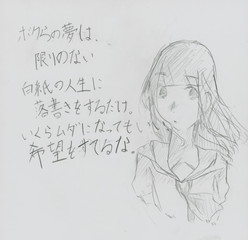 ボクらの夢は、
限りのない
白紙の人生に
落書きをするだけ。
いくらムダになっても
希望をすてるな。